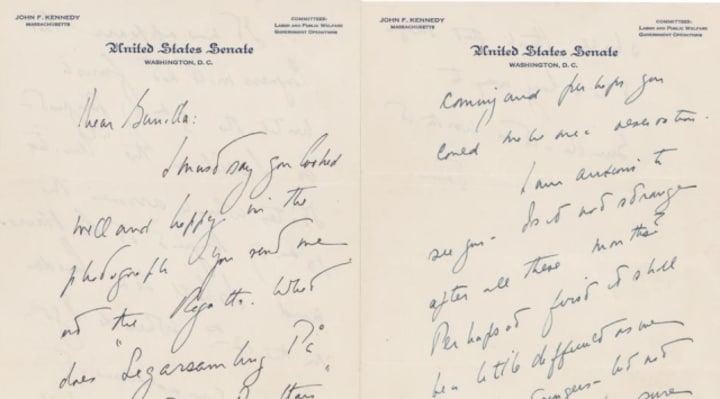 JOHN F. KENNEDY
MASSACHUSETTS
COMMITTEES:
LABOR AND PUBLIC WELFARE
GOVERNMENT OPERATIONS
United States Senate
WASHINGTON, D. C.
Dear Gunilla:
I must say you looked
well and happy in the
photograph you send me
at the Regatta. What
does "Segarsamling På
JOHN F. KENNEDY
MASSACHUSETTS
COMMITTEES:
LABOR AND PUBLIC WELFARE
GOVERNMENT OPERATIONS
United States Senate
WASHINGTON, D. C.
coming and perhaps you
could make me a reservation.
I am anxious to
see you - Is it not strange
after all these months?
Perhaps at first it shall
be a little difficult as we
strangers - but not
sure